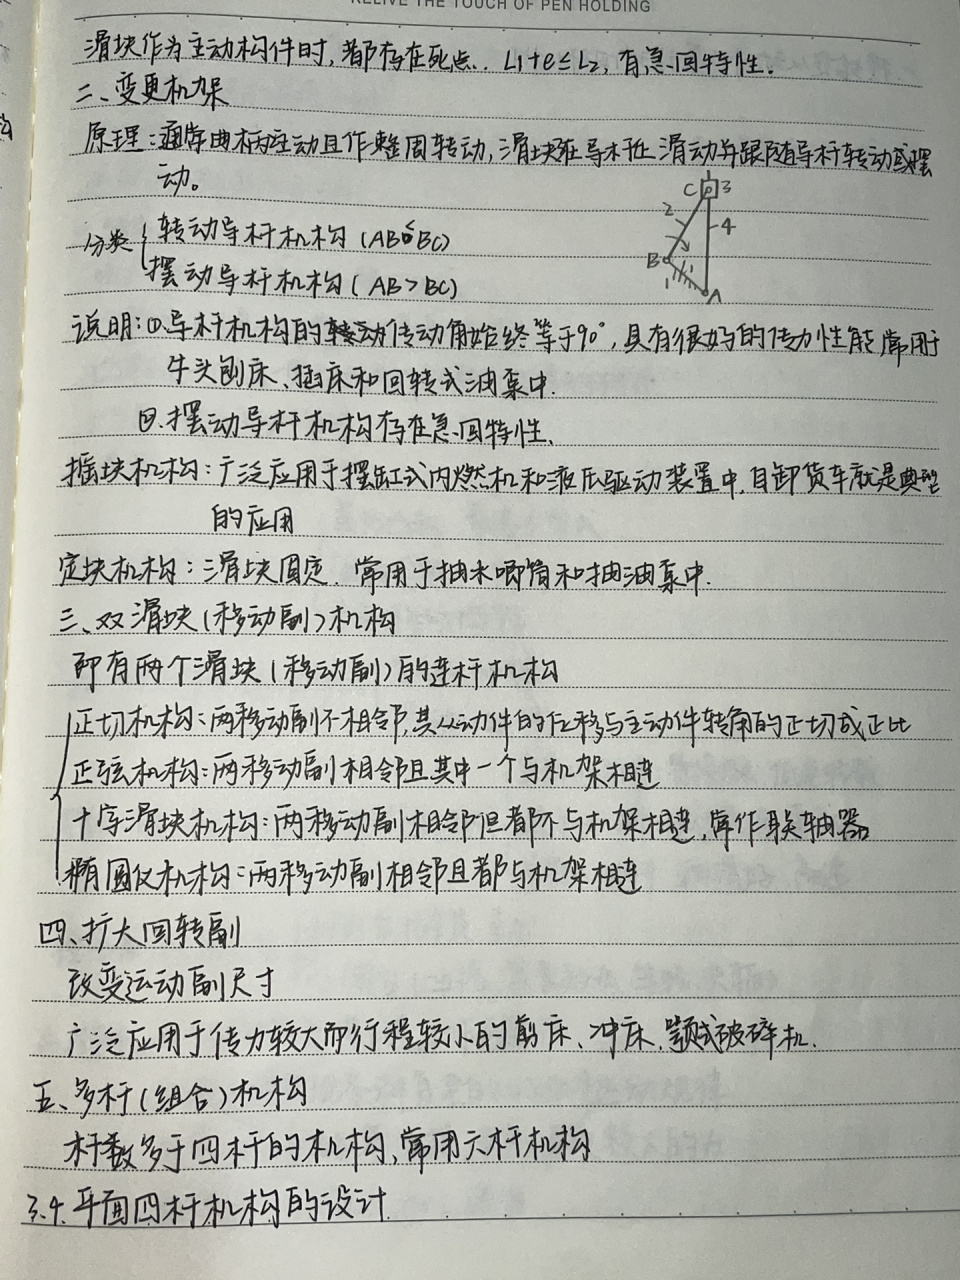 RELIVE THE TOUCH OF PEN HOLDING
滑块作为主动构件时，都存在死点. L1+e≤L2, 有急回特性.
二、变更机架
原理：通常曲柄主动且作整周转动，滑块在导杆上滑动并跟随导杆转动或摆
动。
C 3
2
4
B
1
A
分类
转动导杆机构 (AB≤BC)
摆动导杆机构 (AB>BC)
说明：①.导杆机构的传动角始终等于90°，具有很好的传力性能,常用于
牛头刨床、插床和回转式油泵中.
②.摆动导杆机构存在急回特性、
摇块机构：广泛应用于摆缸式内燃机和液压驱动装置中，自卸货车就是典型
的应用
定块机构：滑块固定. 常用于抽水唧筒和抽油泵中.
三、双滑块(移动副)机构
即有两个滑块(移动副)的连杆机构
正切机构：两移动副不相邻,其从动件的位移与主动件转角的正切成正比
正弦机构：两移动副相邻且其中一个与机架相连
十字滑块机构：两移动副相邻但都不与机架相连,常作联轴器
椭圆仪机构：两移动副相邻且都与机架相连
四、扩大回转副
改变运动副尺寸
广泛应用于传力较大而行程较小的剪床、冲床、颚式破碎机.
五、多杆(组合)机构
杆数多于四杆的机构,常用六杆机构
3.4.平面四杆机构的设计